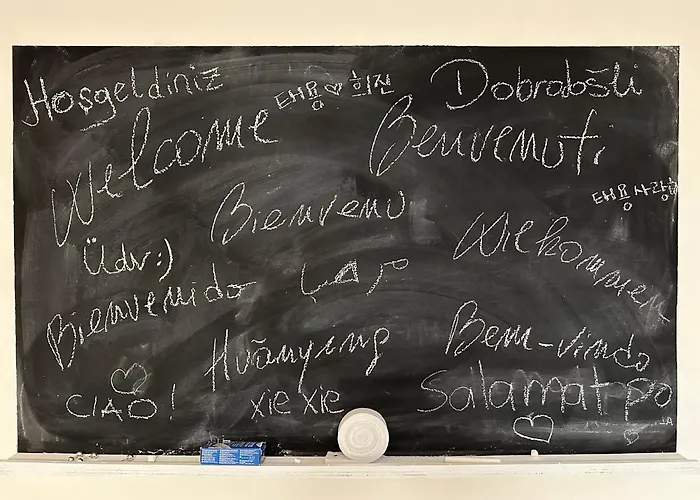 Hoşgeldiniz
태용♡희진
Dobrabošli
Welcome
Benvenuti
태용 사랑해
Bienvenu
Wilkommen
Üdv:)
Bienvenido
Huānying
Bem-vindo
CIAO!
xie xie
Salamat po